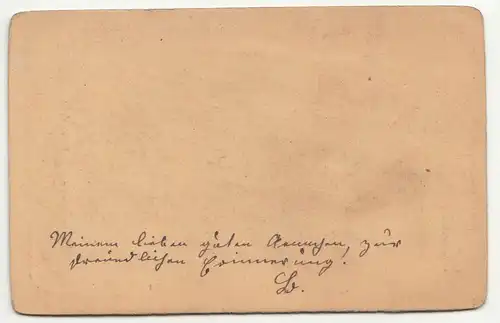 Meinem lieben guten Aennchen, zur
freundlichen Erinnerung!